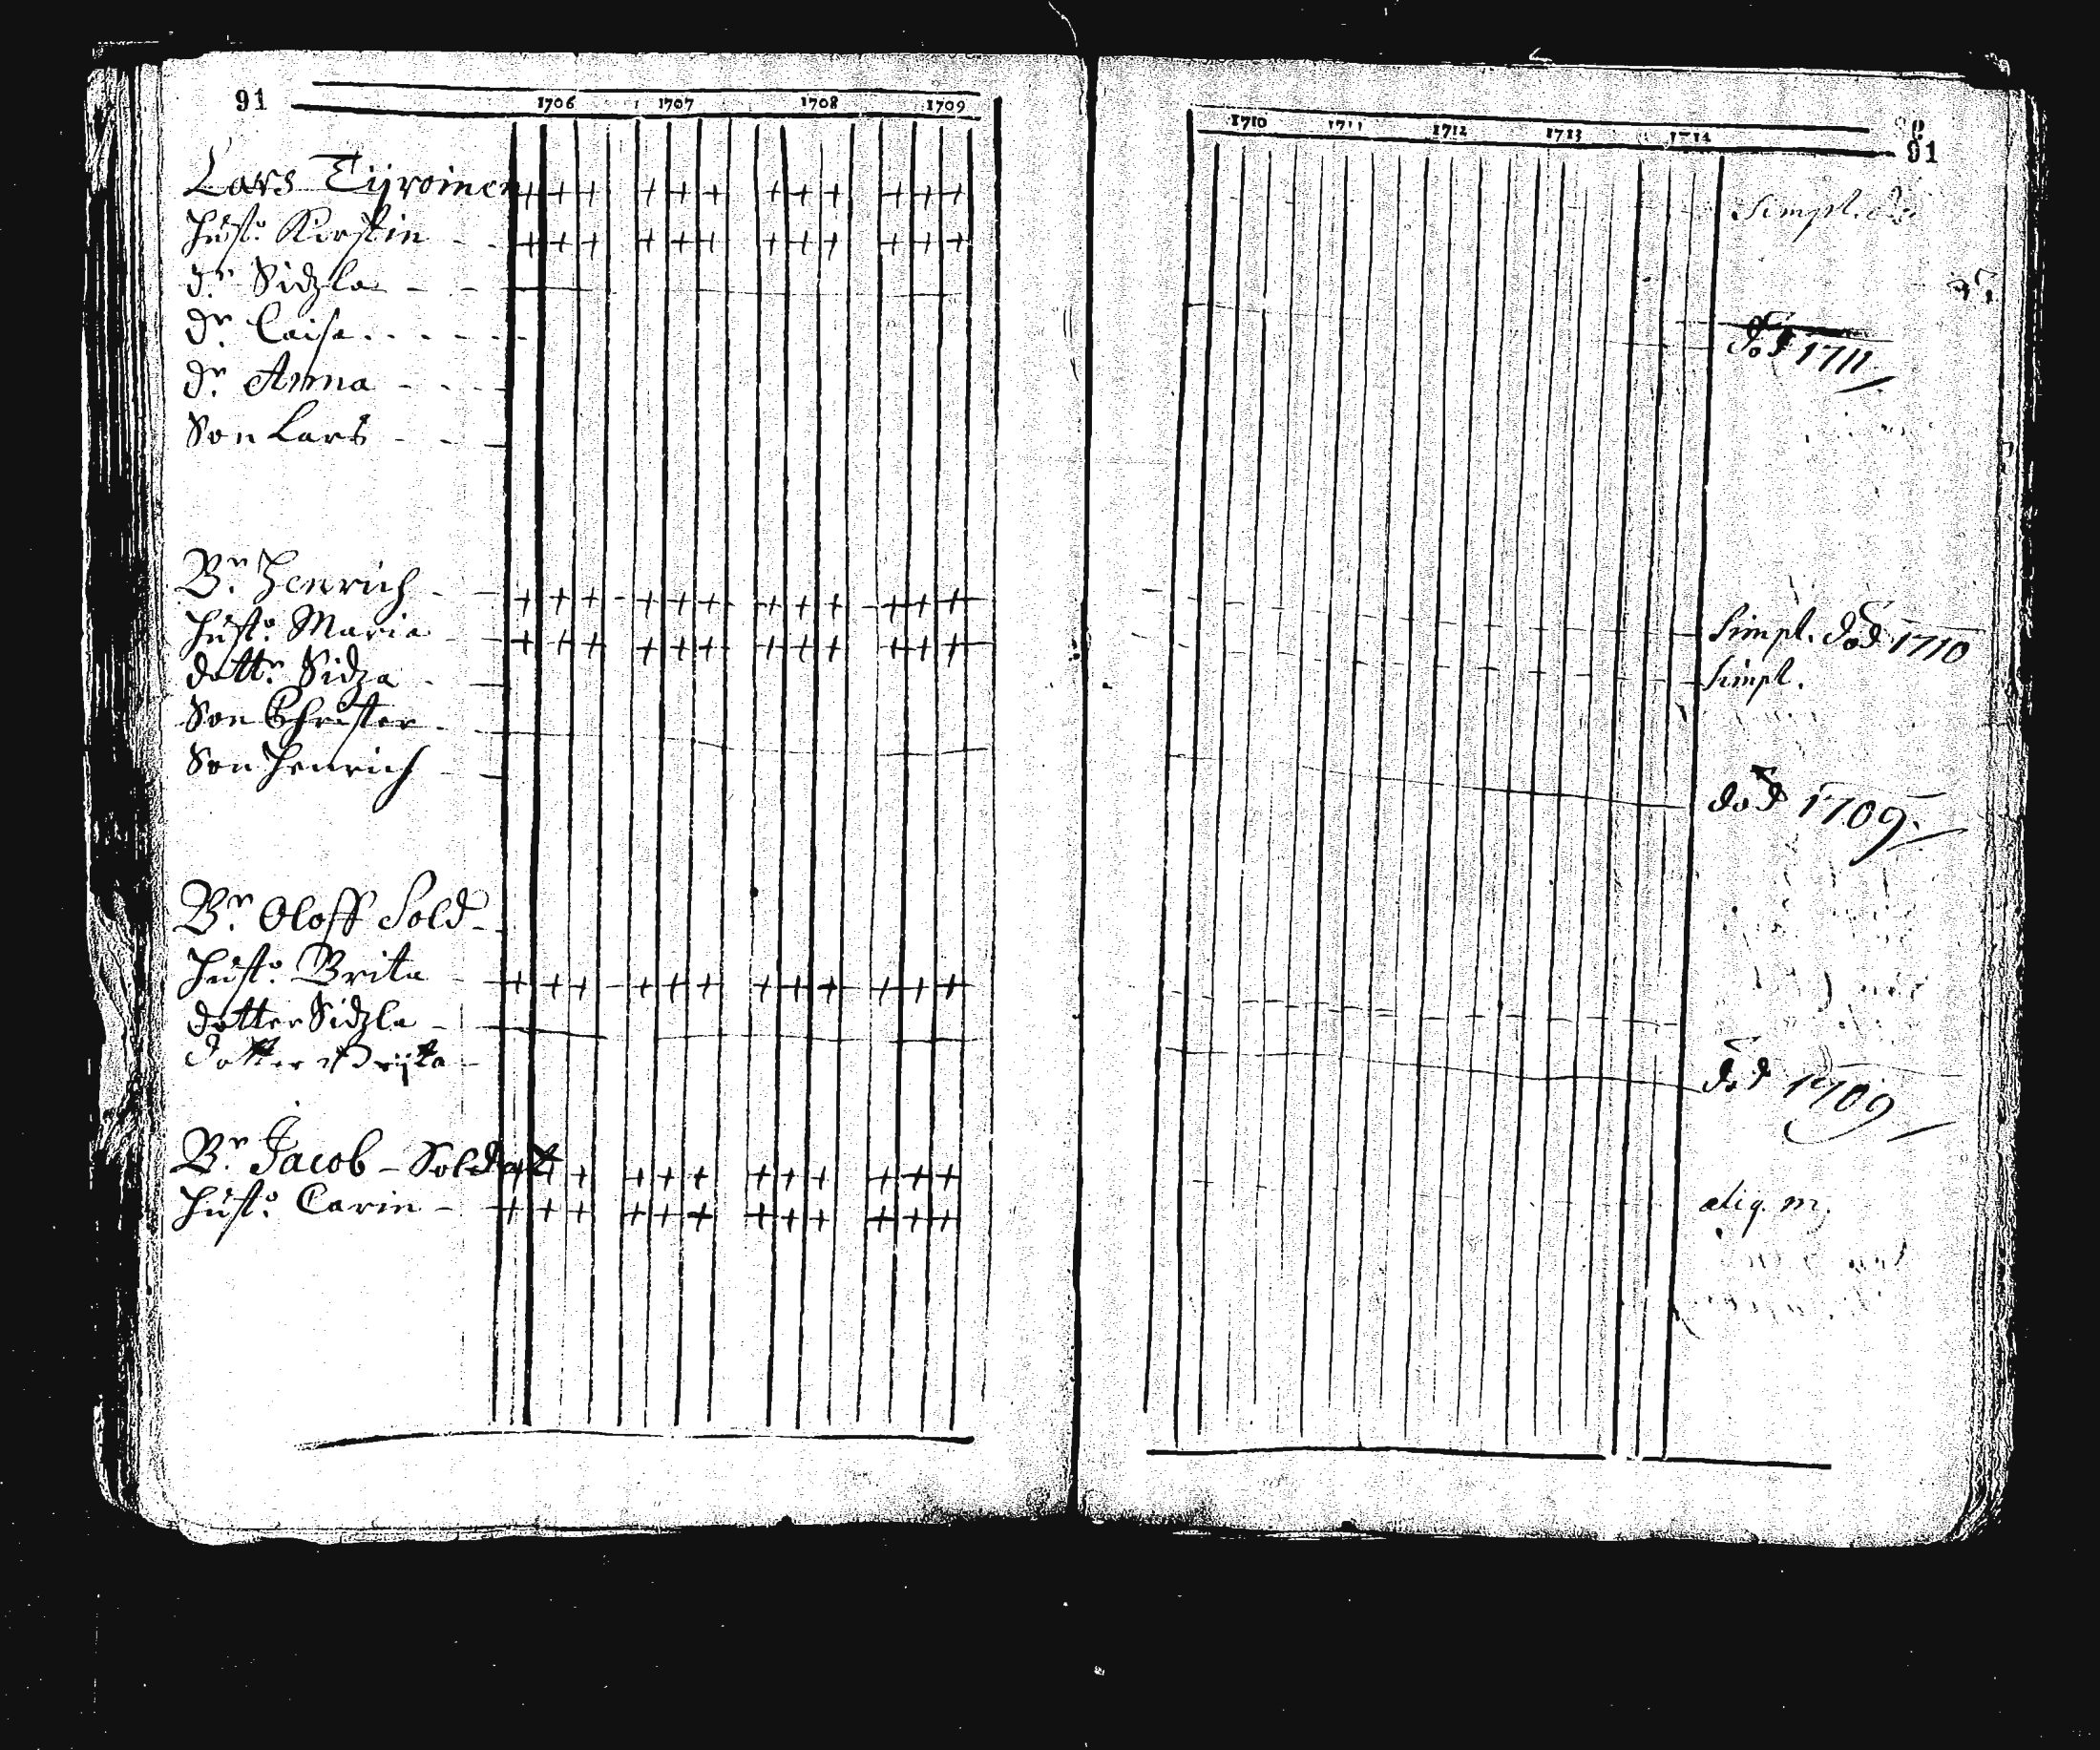 91 1706 1707 1708 1709
Lars Tijroinen + + + + + + + + + + + +
Hust: Kirstin + + + + + + + + + + + +
dr. Sidzla
dr. Caisa
dr. Anna
Son Lars
Br. Henrich + + + + + + + + + + + +
Hust: Maria + + + + + + + + + + + +
dottr. Sidza
Son Christer
Son Henrich
Br. Oloff Sold
Hust: Brita + + + + + + + + + + + +
dotter Sidzla
dotter Brijta
Br. Jacob - Soldat + + + + + + + + + + +
Hust: Carin + + + + + + + + + + + +
1710 1711 1712 1713 1714
91
Simpl.
död 1711
Simpl. död 1710
Simpl.
död 1709
död 1709
aliq. m.